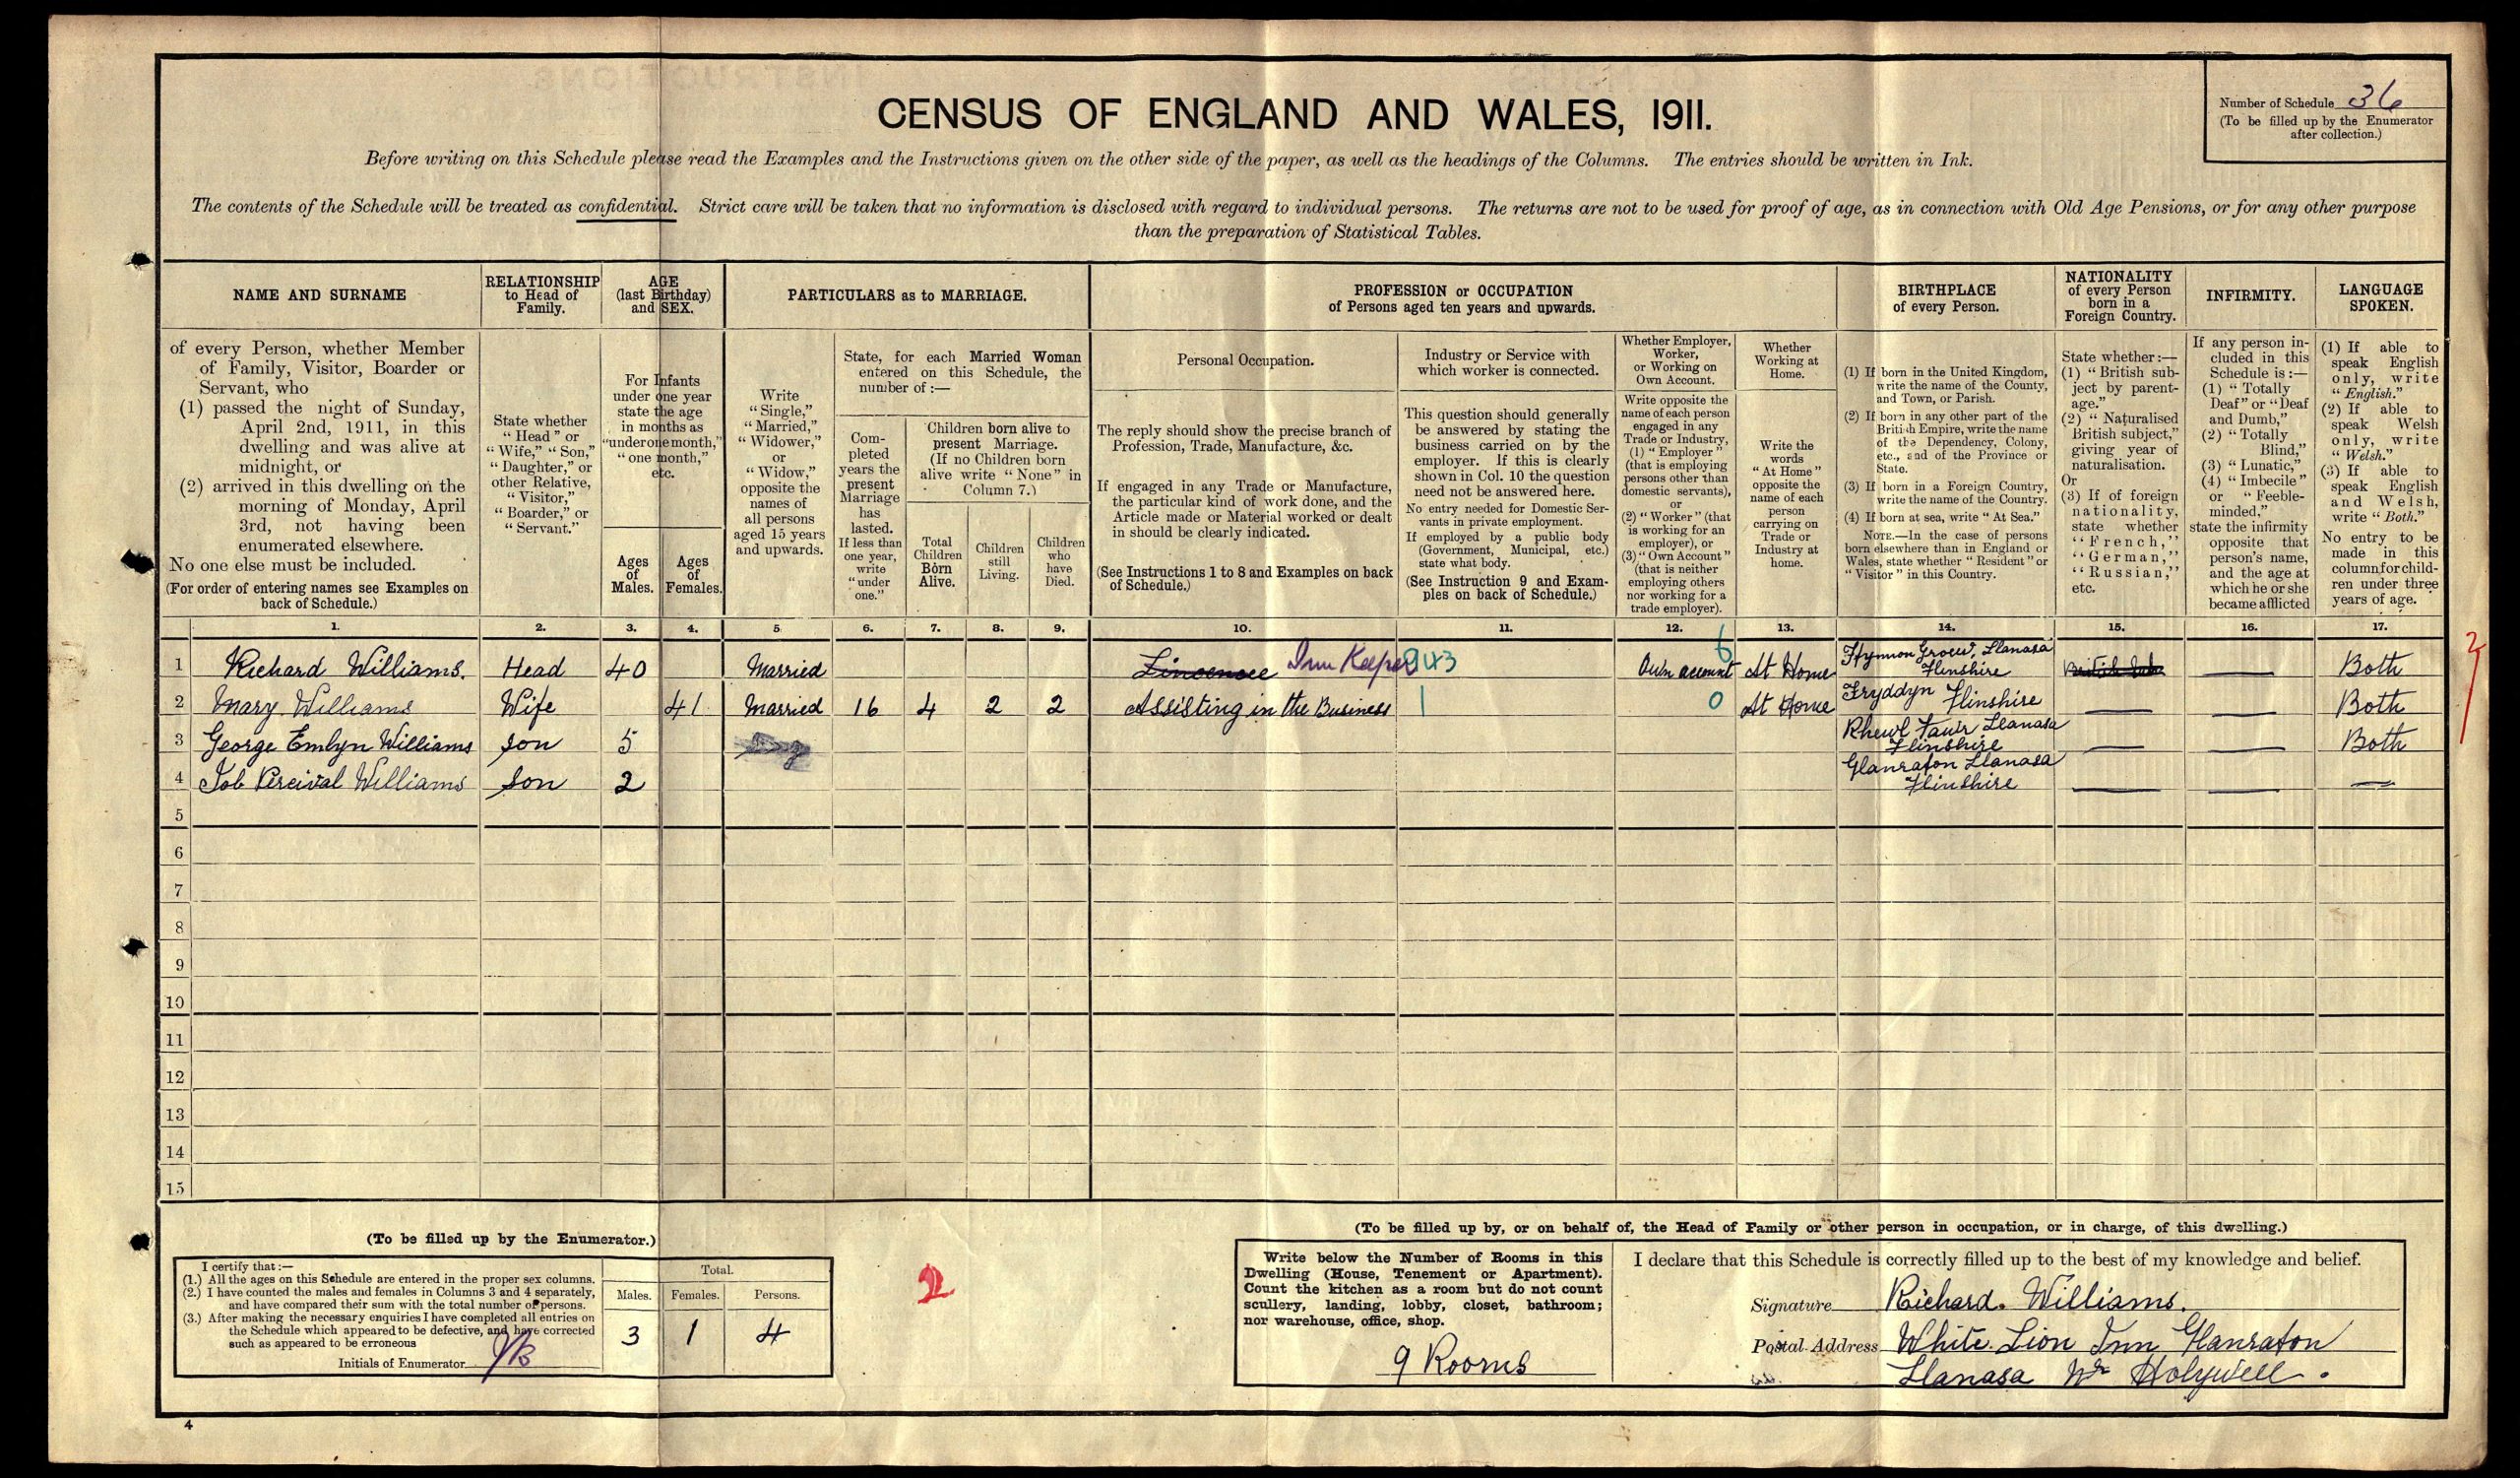 CENSUS OF ENGLAND AND WALES, 1911.
Number of Schedule 36
(To be filled up by the Enumerator
after collection.)
Before writing on this Schedule please read the Examples and the Instructions given on the other side of the paper, as well as the headings of the Columns. The entries should be written in Ink.
The contents of the Schedule will be treated as confidential. Strict care will be taken that no information is disclosed with regard to individual persons. The returns are not to be used for proof of age, as in connection with Old Age Pensions, or for any other purpose
than the preparation of Statistical Tables.
NAME AND SURNAME
of every Person, whether Member
of Family, Visitor, Boarder or
Servant, who
(1) passed the night of Sunday,
April 2nd, 1911, in this
dwelling and was alive at
midnight, or
(2) arrived in this dwelling on the
morning of Monday, April
3rd, not having been
enumerated elsewhere.
No one else must be included.
(For order of entering names see Examples on
back of Schedule.)
RELATIONSHIP
to Head of
Family.
State whether
"Head" or
"Wife," "Son,"
"Daughter," or
other Relative,
"Visitor,"
"Boarder," or
"Servant."
AGE
(last Birthday)
and SEX.
For Infants
under one year
state the age
in months as
"under one month,"
"one month,"
etc.
Ages
of
Males.
Ages
of
Females.
PARTICULARS as to MARRIAGE.
Write
"Single,"
"Married,"
"Widower,"
or
"Widow,"
opposite the
names of
all persons
aged 15 years
and upwards.
State, for each Married Woman
entered on this Schedule, the
number of :—
Com-
pleted
years the
present
Marriage
has
lasted.
If less than
one year,
write
"under
one."
Children born alive to
present Marriage.
(If no Children born
alive write "None" in
Column 7.)
Total
Children
Born
Alive.
Children
still
Living.
Children
who
have
Died.
PROFESSION or OCCUPATION
of Persons aged ten years and upwards.
Personal Occupation.
The reply should show the precise branch of
Profession, Trade, Manufacture, &c.
If engaged in any Trade or Manufacture,
the particular kind of work done, and the
Article made or Material worked or dealt
in should be clearly indicated.
(See Instructions 1 to 8 and Examples on back
of Schedule.)
Industry or Service with
which worker is connected.
This question should generally
be answered by stating the
business carried on by the
employer. If this is clearly
shown in Col. 10 the question
need not be answered here.
No entry needed for Domestic Ser-
vants in private employment.
If employed by a public body
(Government, Municipal, etc.)
state what body.
(See Instruction 9 and Exam-
ples on back of Schedule.)
Whether Employer,
Worker,
or Working on
Own Account.
Write opposite the
name of each person
engaged in any
Trade or Industry,
(1) "Employer"
(that is employing
persons other than
domestic servants),
or
(2) "Worker" (that
is working for an
employer), or
(3) "Own Account"
(that is neither
employing others
nor working for a
trade employer).
Whether
Working at
Home.
Write the
words
"At Home"
opposite the
name of each
person
carrying on
Trade or
Industry at
home.
BIRTHPLACE
of every Person.
(1) If born in the United Kingdom,
write the name of the County,
and Town, or Parish.
(2) If born in any other part of the
British Empire, write the name
of the Dependency, Colony,
etc., and of the Province or
State.
(3) If born in a Foreign Country,
write the name of the Country.
(4) If born at sea, write "At Sea."
NOTE.—In the case of persons
born elsewhere than in England or
Wales, state whether "Resident" or
"Visitor" in this Country.
NATIONALITY
of every Person
born in a
Foreign Country.
State whether :—
(1) "British sub-
ject by parent-
age."
(2) "Naturalised
British subject,"
giving year of
naturalisation.
Or
(3) If of foreign
nationality,
state whether
"French,"
"German,"
"Russian,"
etc.
INFIRMITY.
If any person in-
cluded in this
Schedule is :—
(1) "Totally
Deaf" or "Deaf
and Dumb,"
(2) "Totally
Blind,"
(3) "Lunatic,"
(4) "Imbecile"
or "Feeble-
minded,"
state the infirmity
opposite that
person's name,
and the age at
which he or she
became afflicted
LANGUAGE
SPOKEN.
(1) If able to
speak English
only, write
"English."
(2) If able to
speak Welsh
only, write
"Welsh."
(3) If able to
speak English
and Welsh,
write "Both."
No entry to be
made in this
column for child-
ren under three
years of age.
1. 2. 3. 4. 5 6. 7. 8. 9. 10. 11. 12. 13. 14. 15. 16. 17.
1 Richard Williams. Head 40 Married Inn Keeper 943 Own account 6 At Home Ffynnon Groew, Llanasa Flinshire Both
2 Mary Williams Wife 41 Married 16 4 2 2 Assisting in the Business 1 0 At Home Tryddyn Flinshire Both
3 George Emlyn Williams Son 5 Rhewl Llanasa Flinshire Both
4 Job Percival Williams Son 2 Glanrafon Llanasa Flinshire
5
6
7
8
9
10
11
12
13
14
15
2
(To be filled up by the Enumerator.)
I certify that :—
(1.) All the ages on this Schedule are entered in the proper sex columns.
(2.) I have counted the males and females in Columns 3 and 4 separately,
and have compared their sum with the total number of persons.
(3.) After making the necessary enquiries I have completed all entries on
the Schedule which appeared to be defective, and have corrected
such as appeared to be erroneous
Initials of Enumerator
Total.
Males. Females. Persons.
3 1 4
2
(To be filled up by, or on behalf of, the Head of Family or other person in occupation, or in charge, of this dwelling.)
Write below the Number of Rooms in this
Dwelling (House, Tenement or Apartment).
Count the kitchen as a room but do not count
scullery, landing, lobby, closet, bathroom;
nor warehouse, office, shop.
9 Rooms
I declare that this Schedule is correctly filled up to the best of my knowledge and belief.
Signature Richard. Williams.
Postal Address White Lion Inn Glanrafon
Llanasa Nr Holywell.
4